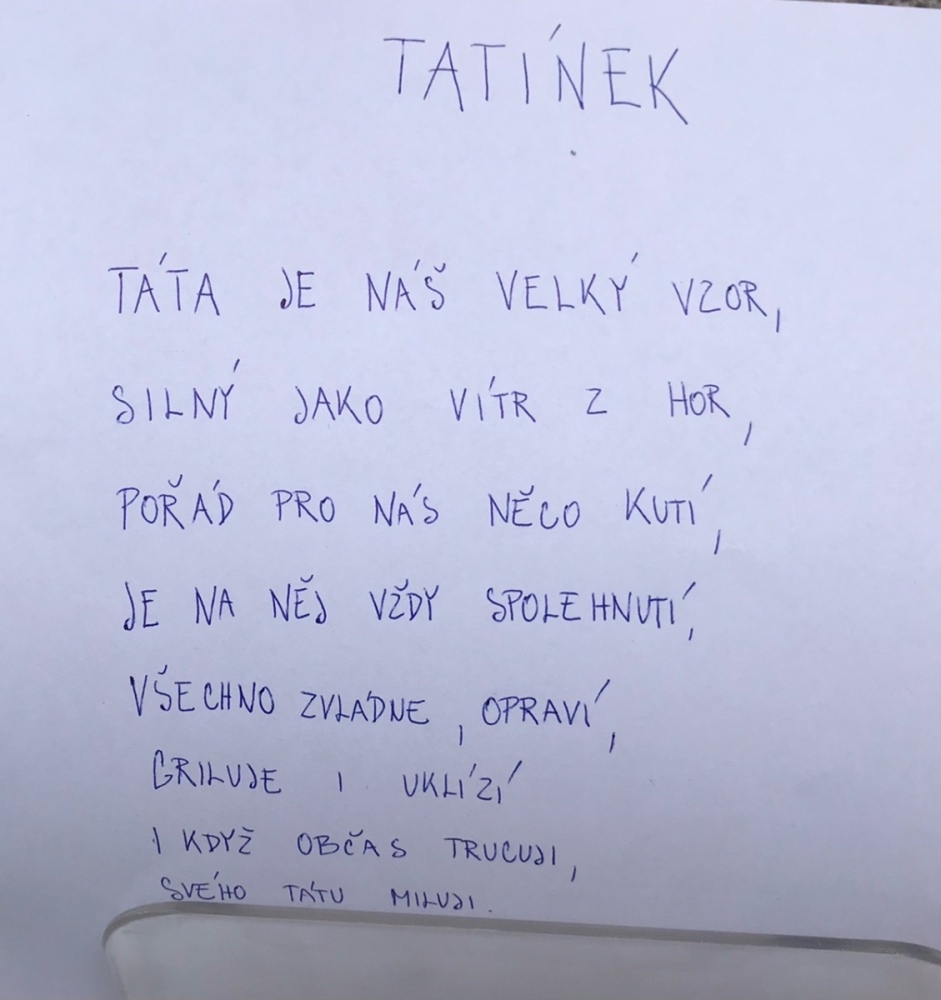 TATÍNEK
TÁTA JE NÁŠ VELKÝ VZOR,
SILNÝ JAKO VÍTR Z HOR,
POŘÁD PRO NÁS NĚCO KUTÍ,
JE NA NĚJ VŽDY SPOLEHNUTÍ,
VŠECHNO ZVLÁDNE, OPRAVÍ,
GRILUJE I UKLÍZÍ
I KDYŽ OBČAS TRUCUJI,
SVÉHO TÁTU MILUJI.